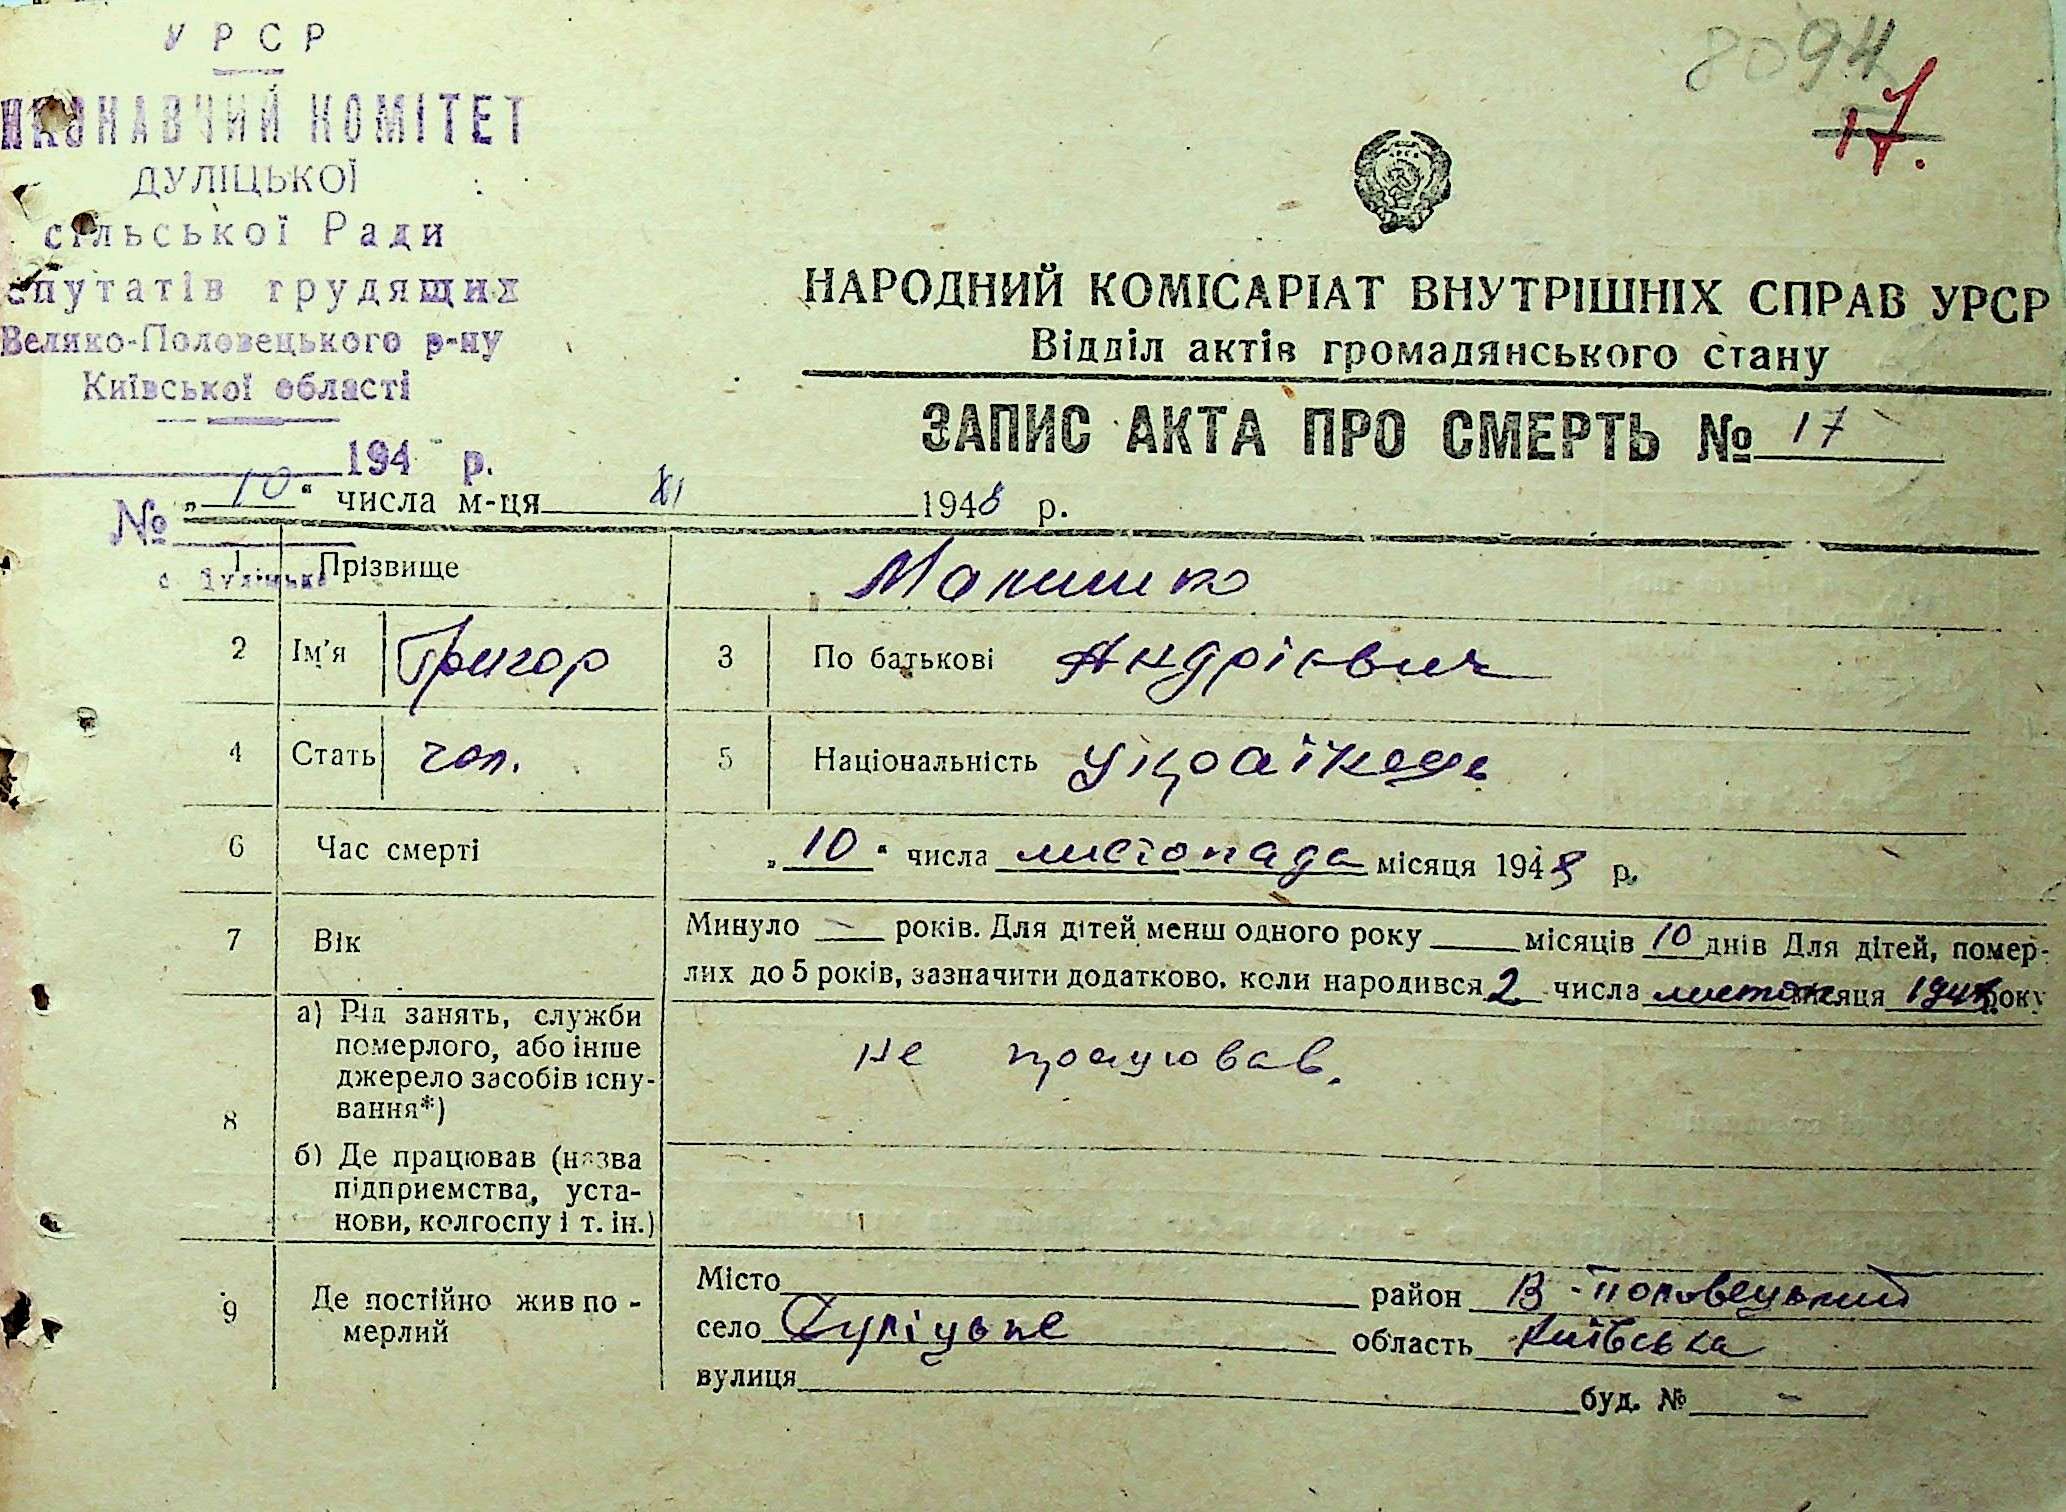 УРСР
ИКОНАВЧИЙ КОМІТЕТ
ДУЛІЦЬКОЇ
сільської Ради
епутатів трудящих
Велико-Половецького р-ну
Київської області
194 р.
№
с. Дуліцьке
8094
17.
УРСР
НАРОДНИЙ КОМІСАРІАТ ВНУТРІШНІХ СПРАВ УРСР
Відділ актів громадянського стану
ЗАПИС АКТА ПРО СМЕРТЬ № 17
„10“ числа м-ця XI 1948 р.
1 Прізвище Малишко
2 Ім'я Григор 3 По батькові Андрієвич
4 Стать чол. 5 Національність Українець
6 Час смерті „10“ числа листопада місяця 1948 р.
7 Вік Минуло — років. Для дітей менш одного року місяців 10 днів Для дітей, помер-
лих до 5 років, зазначити додатково, коли народився 2 числа листоп місяця 1948 року
8 а) Рід занять, служби
померлого, або інше
джерело засобів існу-
вання*)
не працював.
б) Де працював (назва
підприємства, уста-
нови, колгоспу і т. ін.)
9 Де постійно жив по-
мерлий
Місто район В-Половецький
село Дуліцьке область Київська
вулиця буд. № -